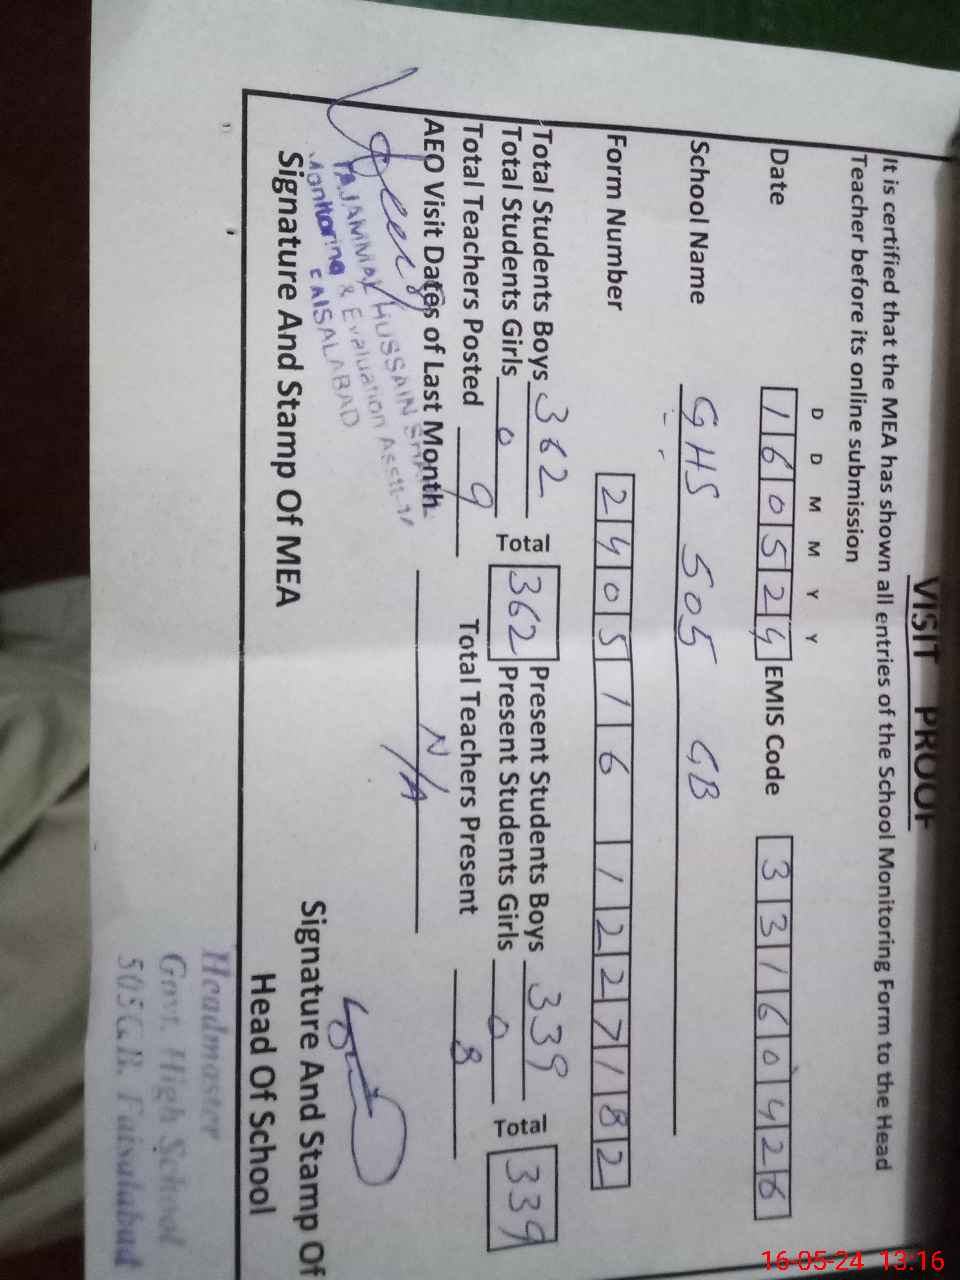 VISIT PROOF
It is certified that the MEA has shown all entries of the School Monitoring Form to the Head
Teacher before its online submission
D D M M Y Y
Date 160524 EMIS Code 33160426
School Name GHS 505 GB
Form Number 240516 1227182
Total Students Boys 362 Total 362 Present Students Boys 339 Total 339
Total Students Girls 0 Present Students Girls 0
Total Teachers Posted 9 Total Teachers Present 8
AEO Visit Dates of Last Month N/A
TAJAMMAL HUSSAIN
Monitoring & Evaluation Asstt-
FAISALABAD
Signature And Stamp Of MEA
Signature And Stamp Of
Head Of School
Headmaster
Govt. High School
505G.B. Faisalabad
16-05-24 13:16